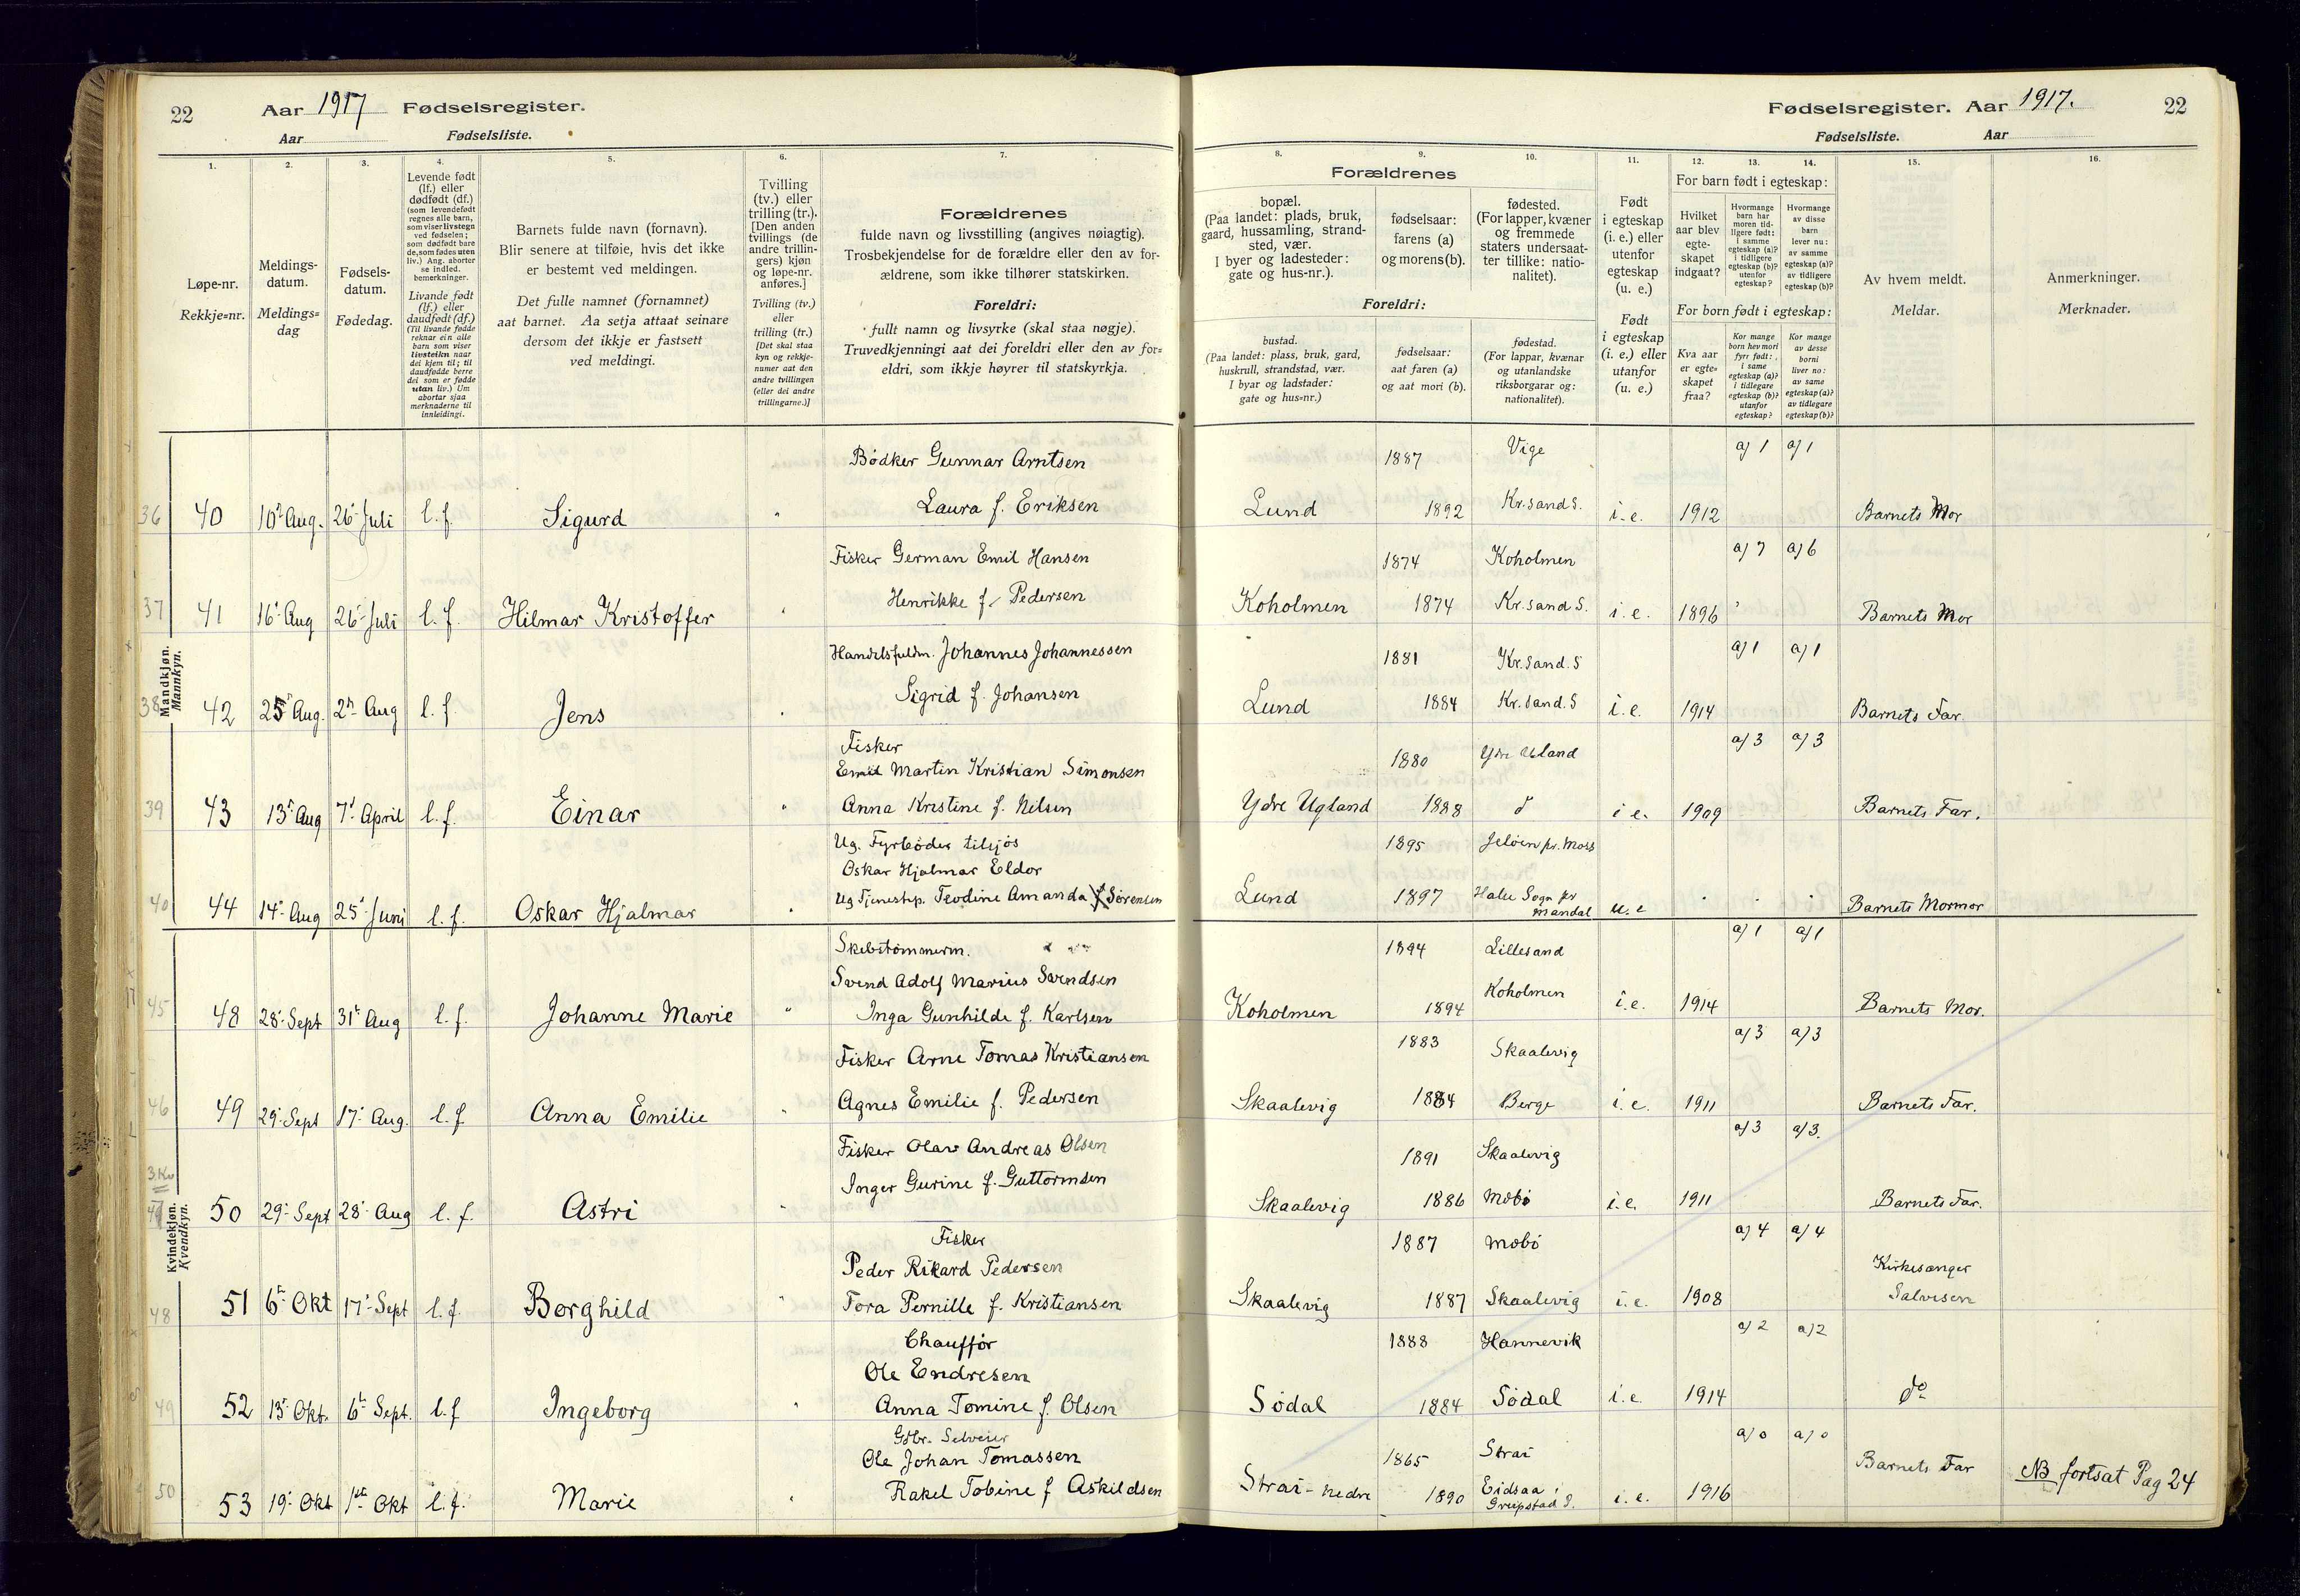 22
Aar 1917 Fødselsregister.
Aar Fødselsliste.
1. 2. 3. 4. 5. 6. 7.
Løpe-nr.
Rekkje=nr.
Meldings-
datum.
Meldings=
dag
Fødsels-
datum.
Fødedag.
Levende født
(lf.) eller
dødfødt (df.)
(som levendefødt
regnes alle barn,
som viser livstegn
ved fødselen;
som dødfødt bare
de, som fødes uten
liv.) Ang. aborter
se indled.
bemerkninger.
Livande født
(lf.) eller
daudfødt (df.)
(Til livande fødde
reknar ein alle
barn som viser
livsteikn naar
dei kjem til; til
daudfødde berre
dei som er fødde
utan liv.) Um
abortar sjaa
merknaderne til
innleidingi.
Barnets fulde navn (fornavn).
Blir senere at tilføie, hvis det ikke
er bestemt ved meldingen.
Det fulle namnet (fornamnet)
aat barnet. Aa setja attaat seinare
dersom det ikkje er fastsett
ved meldingi.
Tvilling
(tv.) eller
trilling (tr.).
[Den anden
tvillings (de
andre trillin-
gers) kjøn
og løpe-nr.
anføres.]
Tvilling (tv.)
eller
trilling (tr.)
[Det skal staa
kyn og rekkje-
numer aat den
andre tvillingen
(eller dei andre
trillingarne.)]
Forældrenes
fulde navn og livsstilling (angives nøiagtig).
Trosbekjendelse for de forældre eller den av for-
ældrene, som ikke tilhører statskirken.
Foreldri:
fullt namn og livsyrke (skal staa nøgje).
Truvedkjenningi aat dei foreldri eller den av for=
eldri, som ikkje høyrer til statskyrkja.
Mandkjøn.
Mannkyn.
Bødker Gunnar Arntsen
36 40 10' Aug. 26' Juli l. f. Sigurd " Laura f. Eriksen
Fisker German Emil Hansen
37 41 16' Aug 26' Juli l. f. Hilmar Kristoffer " Henrikke f. Pedersen
Handelsfuldm. Johannes Johannessen
38 42 25' Aug. 2' Aug l. f. Jens " Sigrid f. Johansen
Fisker
Emil Martin Kristian Simonsen
39 43 13' Aug 7' April l. f. Einar " Anna Kristine f. Nilsen
Ug. Fyrbøder tilsjøs
Oskar Hjalmar Eldor
40 44 14' Aug 25' Juni l. f. Oskar Hjalmar " Ug Tjenestep. Teodine Amanda f Sørensen
Kvindekjøn.
Kvendkyn.
Skibstømmerm.
Svend Adolf Marius Svendsen
45 48 28' Sept 31' Aug l. f. Johanne Marie " Inga Gunhilde f. Karlsen
Fisker Arne Tomas Kristiansen
46 49 29' Sept 17' Aug. l. f. Anna Emilie " Agnes Emilie f. Pedersen
Fisker Olav Andreas Olsen
47 50 29' Sept 28' Aug l. f. Astri " Inger Gurine f. Guttormsen
Fisker
Peder Rikard Pedersen
48 51 6' Okt 17' Sept l. f. Borghild " Tora Pernille f. Kristiansen
Chauffør
Ole Endresen
49 52 13' Okt. 6' Sept. l. f Ingeborg " Anna Tomine f. Olsen
Gbr. Selveier
Ole Johan Tomassen
50 53 19' Okt 1' Okt l. f. Marie " Rakel Tobine f Askildsen
Fødselsregister. Aar 1917. 22
Fødselsliste. Aar
8. 9. 10. 11. 12. 13. 14. 15. 16.
Forældrenes
bopæl.
(Paa landet: plads, bruk,
gaard, hussamling, strand-
sted, vær.
I byer og ladesteder:
gate og hus-nr.).
fødselsaar:
farens (a)
og morens (b).
fødested.
(For lapper, kvæner
og fremmede
staters undersaat-
ter tillike: natio-
nalitet).
Foreldri:
bustad.
(Paa landet: plass, bruk, gard,
huskrull, strandstad, vær.
I byar og ladstader:
gate og hus=nr.)
fødselsaar:
aat faren (a)
og aat mori (b).
fødestad.
(For lappar, kvænar
og utanlandske
riksborgarar og:
nationalitet).
Født
i egteskap
(i. e.) eller
utenfor
egteskap
(u. e.)
Født
i egteskap
(i. e.) eller
utanfor
egteskap
(u. e.)
For barn født i egteskap:
Hvilket
aar blev
egte-
skapet
indgaat?
Hvormange
barn har
moren tid-
ligere født:
i samme
egteskap (a)?
i tidligere
egteskap (b)?
utenfor
egteskap?
Hvormange
av disse
barn
lever nu:
av samme
egteskap (a)?
av tidligere
egteskap (b)?
For born født i egteskap:
Kva aar
er egte=
skapet
fraa?
Kor mange
born hev mori
fyrr født:
i same
egteskap (a)?
i tidlegare
egteskap (b)?
utanfor
egteskap?
Kor mange
av desse
borni
liver no:
av same
egteskap (a)?
av tidlegare
egteskap (b)?
Av hvem meldt.
Meldar.
Anmerkninger.
Merknader.
1887 Vige a) 1 a) 1
Lund 1892 Kr.sand S. i. e. 1912 Barnets Mor
1874 Koholmen a) 7 a) 6
Koholmen 1874 Kr.sand S. i. e. 1896 Barnets Mor
1881 Kr.sand. S a) 1 a) 1
Lund 1884 Kr.sand. S i. e. 1914 Barnets Far.
1880 Ydre Ugland a) 3 a) 3
Ydre Ugland 1888 d i e. 1909 Barnets Far.
1895 Jeløen pr. Moss
Lund 1897 Halse Sogn pr
Mandal u. e Barnets Mormor
1894 Lillesand a) 1 a) 1
Koholmen 1894 Koholmen i. e. 1914 Barnets Mor.
1883 Skaalevig a) 3 a) 3
Skaalevig 1884 Berge i. e. 1911 Barnets Far.
1891 Skaalevig a) 3 a) 3.
Skaalevig 1886 Mebø i. e. 1911 Barnets Far.
1887 Mebø a) 4 a) 4
Skaalevig 1887 Skaalevig i. e. 1908 Kirkesanger
Salvesen
1888 Hannevik a) 2 a) 2
Sødal 1884 Sødal i. e. 1914 do
1865 Strai a) 0 a) 0
Strai - nedre 1890 Eidsaa i
i. e. 1916 Barnets Far NB fortsat Pag 24